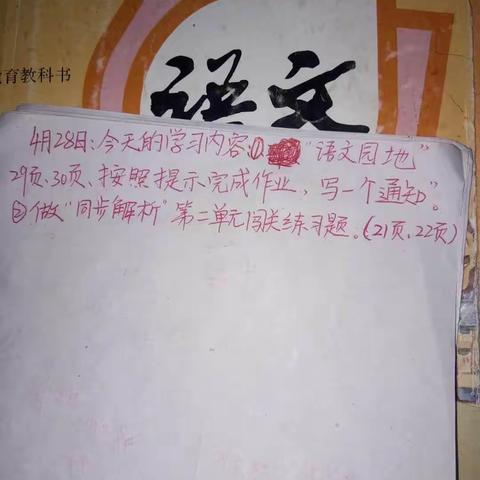 育教科书
语文
4月28日:今天的学习内容:①"语文园地"
29页.30页、按照提示完成作业,写一个通知"。
②做"同步解析"第二单元闯关练习题。(21页、22页)